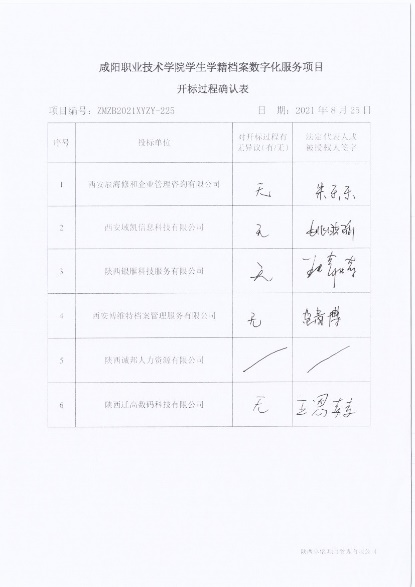 咸阳职业技术学院学生学籍档案数字化服务项目
开标过程确认表
项目编号：ZMZB2021XYZY-225 日 期：2021年8月25日
序号 投标单位 对开标过程有无异议(有/无) 法定代表人或被授权人签字
1 西安 企业管理咨询有限公司 无 朱乐乐
2 西安 信息科技有限公司 无
3 陕西银雁科技服务有限公司 无
4 西安博维特档案管理服务有限公司 无
5 陕西诚邦人力资源有限公司
6 陕西 数码科技有限公司 无 王